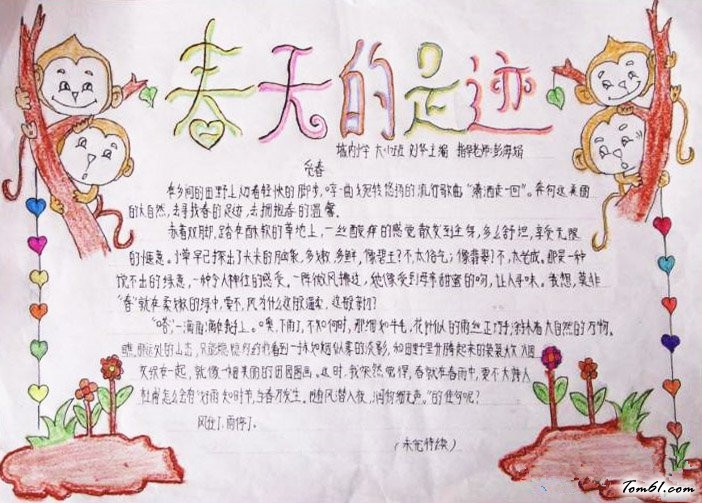 春天的足迹
城内小学 六(1)班 刘华主编 指导老师:彭海娟
觅春
在乡间的田野上,切着轻快的脚步,哼一曲 宛转悠扬的流行歌曲“潇洒走一回”。奔向这美丽
的大自然,去寻找春的足迹,去拥抱春的温馨。
赤着双脚,踏在酥软的草地上,一丝酸痒的感觉散发到全身,多么舒坦,享受无限
的惬意。小草早已探出了尖尖的脑袋,多嫩,多鲜,像碧玉?不,太俗气;像翡翠?不,太老成。那是一种
说不出的绿意,一种令人神往的感受。一阵微风拂过,她像受到母亲甜蜜的吻,让人寻味。我想,莫非
“春”就在柔嫩的绿中,要不,风为什么这般温柔,这般亲切?
“嗒”一滴雨滴在我脸上。噢,下雨了,不知何时,那细如牛毛,花针似的雨丝正巧手涂抹着大自然的万物。
瞧,那远处的山峦,只能隐隐约约看到一抹如烟似雾的淡影,和田野里升腾起来的袅袅炊烟
交织在一起,就像一幅美丽的田园图画。这时,我依然觉得,春就在春雨中,要不大诗人
杜甫怎么会有“好雨知时节,当春乃发生。随风潜入夜,润物细无声。”的佳句呢?
风住了,雨停了。
(未完待续)
Tom61.com